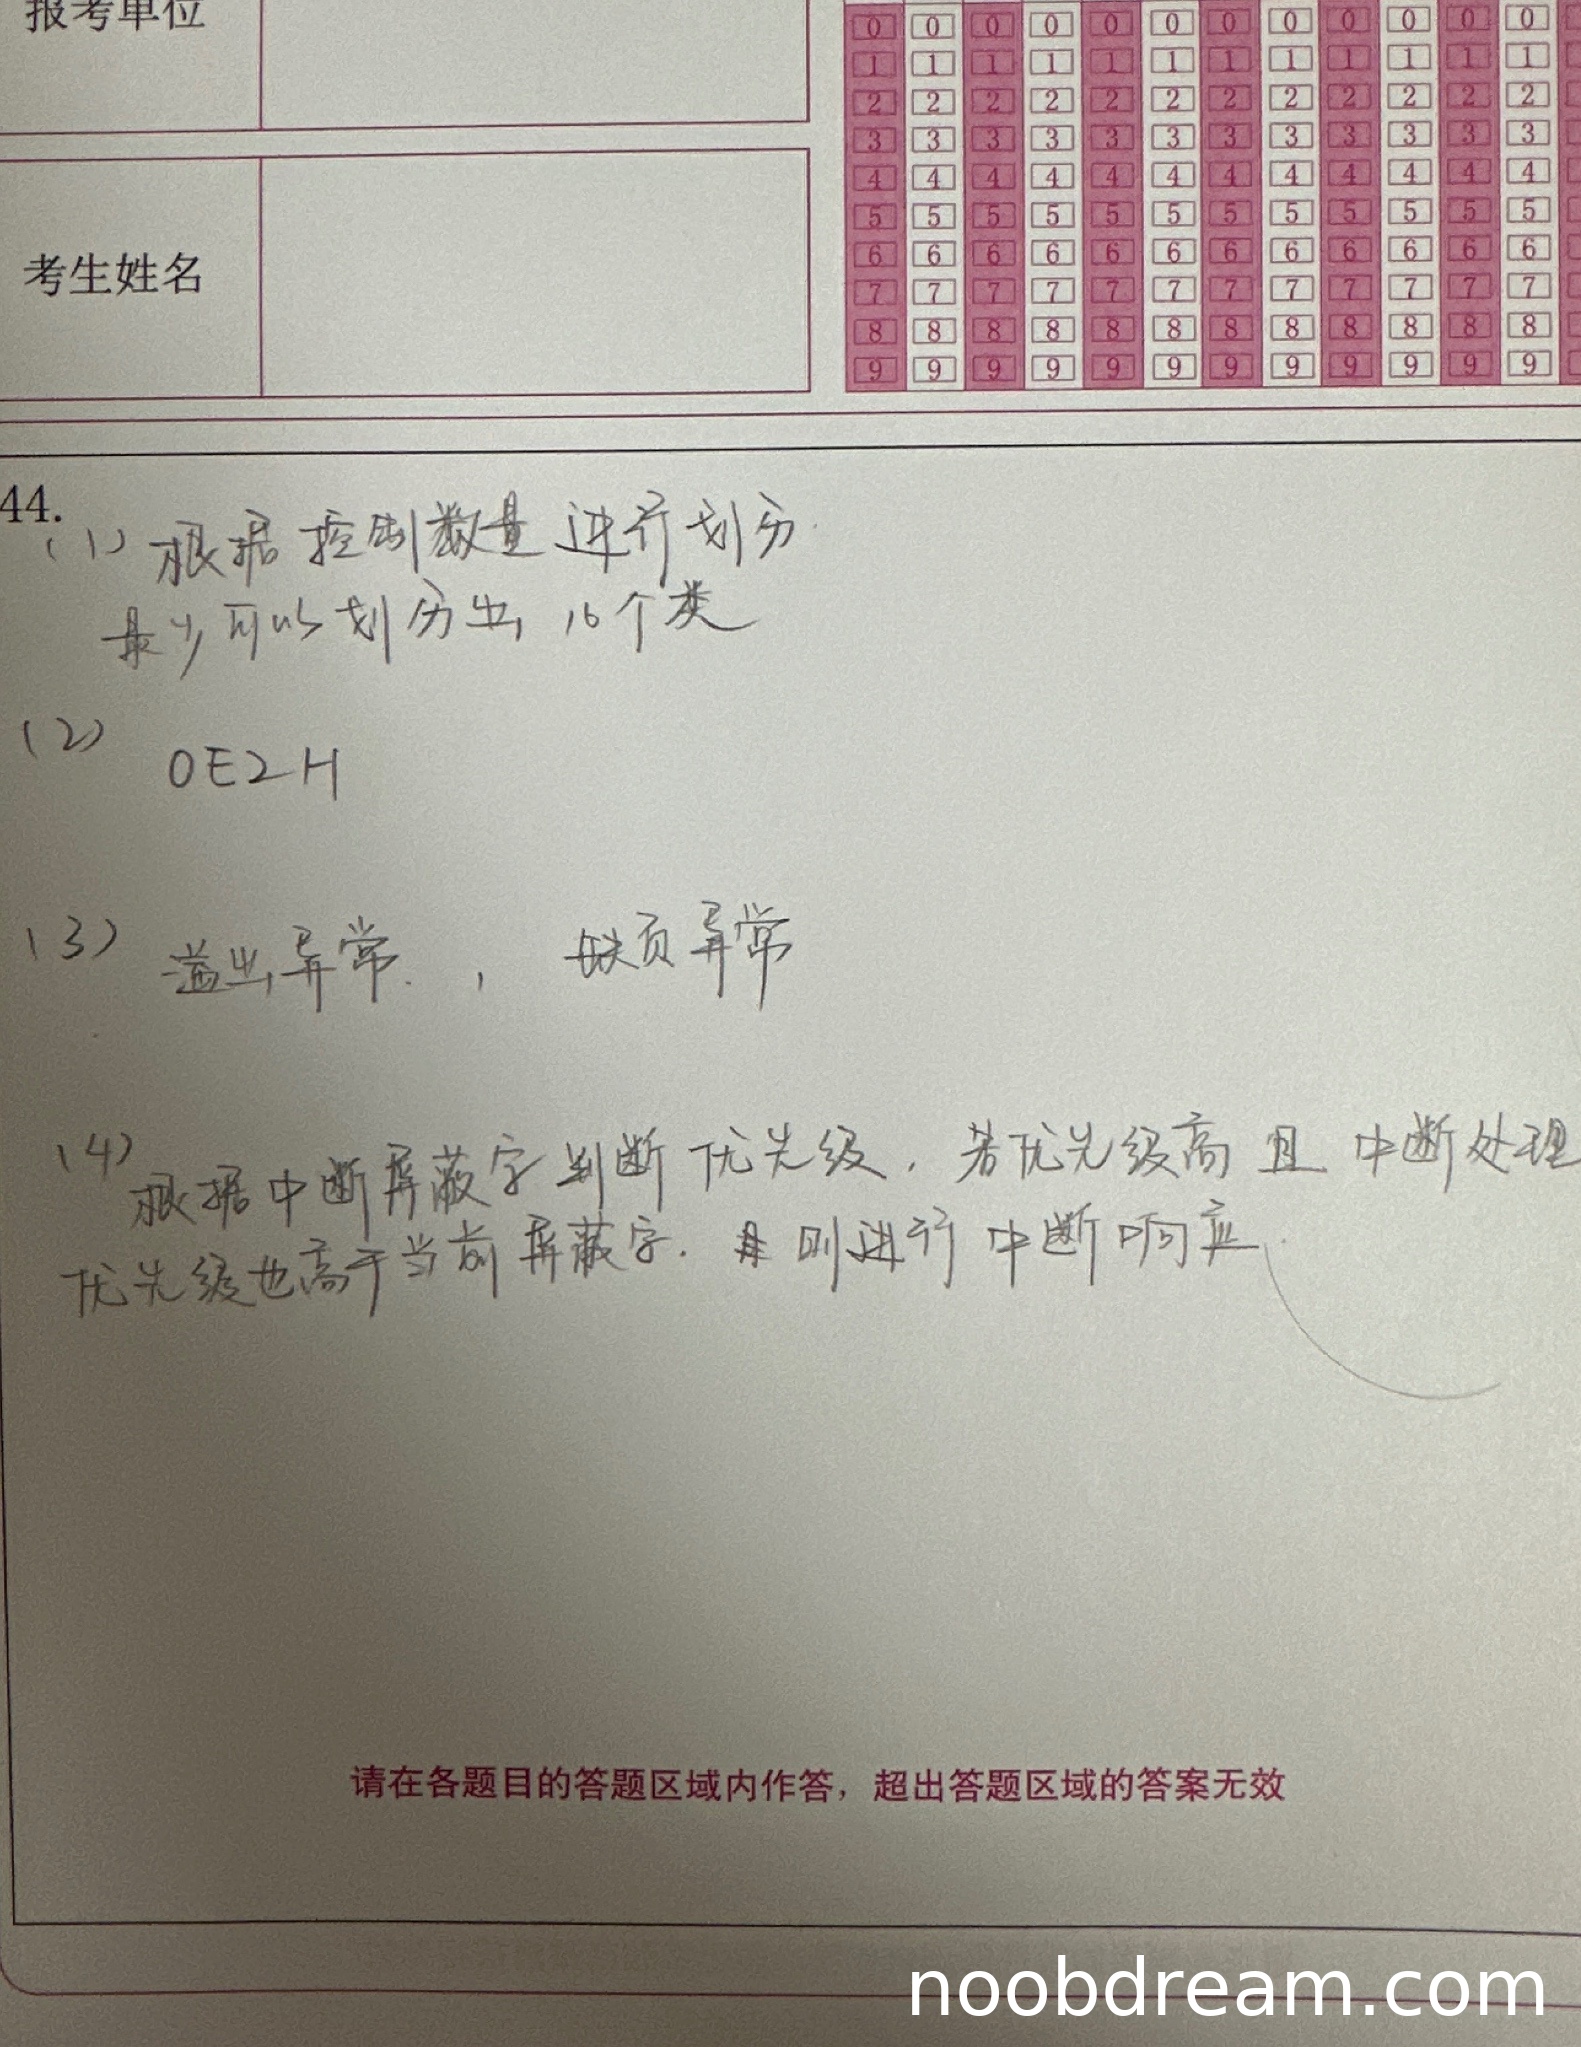 报考单位
0 0 0 0 0 0 0 0 0 0 0 0
1 1 1 1 1 1 1 1 1 1 1 1
2 2 2 2 2 2 2 2 2 2 2 2
3 3 3 3 3 3 3 3 3 3 3 3
4 4 4 4 4 4 4 4 4 4 4 4
5 5 5 5 5 5 5 5 5 5 5 5
6 6 6 6 6 6 6 6 6 6 6 6
7 7 7 7 7 7 7 7 7 7 7 7
8 8 8 8 8 8 8 8 8 8 8 8
9 9 9 9 9 9 9 9 9 9 9 9
考生姓名
44.
(1) 根据控制数量进行划分.
最少可以划分出 16个类
(2) 0E2H
(3) 溢出异常. , 缺页异常
(4) 根据中断屏蔽字判断优先级，若优先级高且中断处理
优先级也高于当前屏蔽字. 则进行中断响应.
请在各题目的答题区域内作答，超出答题区域的答案无效
noobdream.com